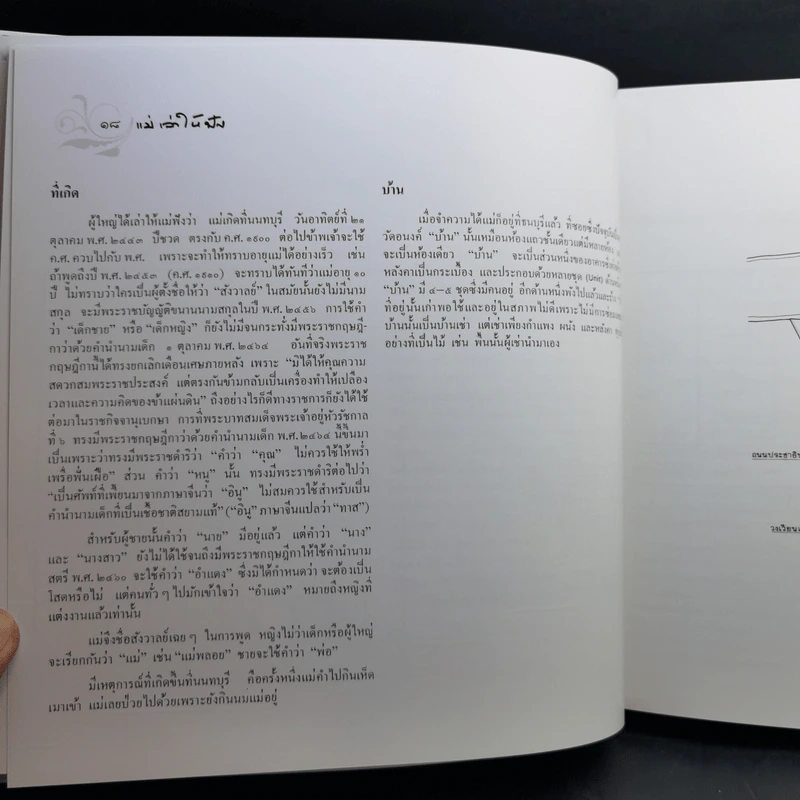 ๑๘ แม่เล่าให้ฟัง
ที่เกิด
ผู้ใหญ่ได้เล่าให้แม่ฟังว่า แม่เกิดที่นนทบุรี วันอาทิตย์ที่ ๒๑
ตุลาคม พ.ศ. ๒๔๔๓ ปีชวด ตรงกับ ค.ศ. ๑๙๐๐ ต่อไปข้าพเจ้าจะใช้
ค.ศ. ควบไปกับ พ.ศ. เพราะจะทำให้ทราบอายุแม่ได้อย่างเร็ว เช่น
ถ้าพูดถึงปี พ.ศ. ๒๔๕๓ (ค.ศ. ๑๙๑๐) จะทราบได้ทันทีว่าแม่อายุ ๑๐
ปี ไม่ทราบว่าใครเป็นผู้ตั้งชื่อให้ว่า “สังวาลย์” ในสมัยนั้นยังไม่มีนาม
สกุล จะมีพระราชบัญญัติขนานนามสกุลในปี พ.ศ. ๒๔๕๖ การใช้คำ
ว่า “เด็กชาย” หรือ “เด็กหญิง” ก็ยังไม่มีจนกระทั่งมีพระราชกฤษฎี-
กาว่าด้วยคำนำนามเด็ก ๑ ตุลาคม พ.ศ. ๒๔๖๔ อันที่จริงพระราช
กฤษฎีกานี้ได้ทรงยกเลิกเดือนเศษภายหลัง เพราะ “มิได้ให้คุณความ
สดวกสมพระราชประสงค์ แต่ตรงกันข้ามกลับเป็นเครื่องทำให้เปลือง
เวลาและความคิดของข้าแผ่นดิน” ถึงอย่างไรก็ดีทางราชการก็ยังได้ใช้
ต่อมาในราชกิจจานุเบกษา การที่พระบาทสมเด็จพระเจ้าอยู่หัวรัชกาล
ที่ ๖ ทรงมีพระราชกฤษฎีกาว่าด้วยคำนำนามเด็ก พ.ศ. ๒๔๖๔ นี้ขึ้นมา
เป็นเพราะว่าทรงมีพระราชดำริว่า “คำว่า “คุณ” ไม่ควรใช้ให้พร่ำ
เพรื่อฟั่นเฝือ” ส่วน คำว่า “หนู” นั้น ทรงมีพระราชดำริต่อไปว่า
“เป็นศัพท์ที่เพี้ยนมาจากภาษาจีนว่า “อินู” ไม่สมควรใช้สำหรับเป็น
คำนำนามเด็กที่เป็นเชื้อชาติสยามแท้” (“อินู” ภาษาจีนแปลว่า “ทาส”)
สำหรับผู้ชายนั้นคำว่า “นาย” มีอยู่แล้ว แต่คำว่า “นาง”
และ “นางสาว” ยังไม่ได้ใช้จนถึงมีพระราชกฤษฎีกาให้ใช้คำนำนาม
สตรี พ.ศ. ๒๔๖๐ จะใช้คำว่า “อำแดง” ซึ่งมิได้กำหนดว่า จะต้องเป็น
โสดหรือไม่ แต่คนทั่ว ๆ ไปมักเข้าใจว่า “อำแดง” หมายถึงหญิงที่
แต่งงานแล้วเท่านั้น
แม่จึงชื่อสังวาลย์เฉย ๆ ในการพูด หญิงไม่ว่าเด็กหรือผู้ใหญ่
จะเรียกกันว่า “แม่” เช่น “แม่พลอย” ชายจะใช้คำว่า “พ่อ”
มีเหตุการณ์ที่เกิดขึ้นที่นนทบุรี คือครั้งหนึ่งแม่คำไปกินเห็ด
เมาเข้า แม่เลยป่วยไปด้วยเพราะยังกินนมแม่อยู่
บ้าน
เมื่อจำความได้แม่ก็อยู่ที่ธนบุรีแล้ว ที่ซอยซึ่งปัจจุบันเป็น
วัดอนงค์ “บ้าน” นั้นเหมือนห้องแถวชั้นเดียวแต่มีหลายห้อง
จะเป็นห้องเดียว “บ้าน” จะเป็นส่วนหนึ่งของอาคารซึ่ง
หลังคาเป็นกระเบื้อง และประกอบด้วยหลายชุด (Unit) ด้าน
“บ้าน” มี ๔–๕ ชุดซึ่งมีคนอยู่ อีกด้านหนึ่งพังไปแล้วและ
ที่อยู่นั้นเก่าพอใช้และอยู่ในสภาพไม่ดีเพราะไม่มีการ
บ้านนั้นเป็นบ้านเช่า แต่เช่าเพียงกำแพง ผนัง และหลังคา
อย่างที่เป็นไม้ เช่น พื้นนั้นผู้เช่านำมาเอง
ถนนประชาธิ
วงเวียน